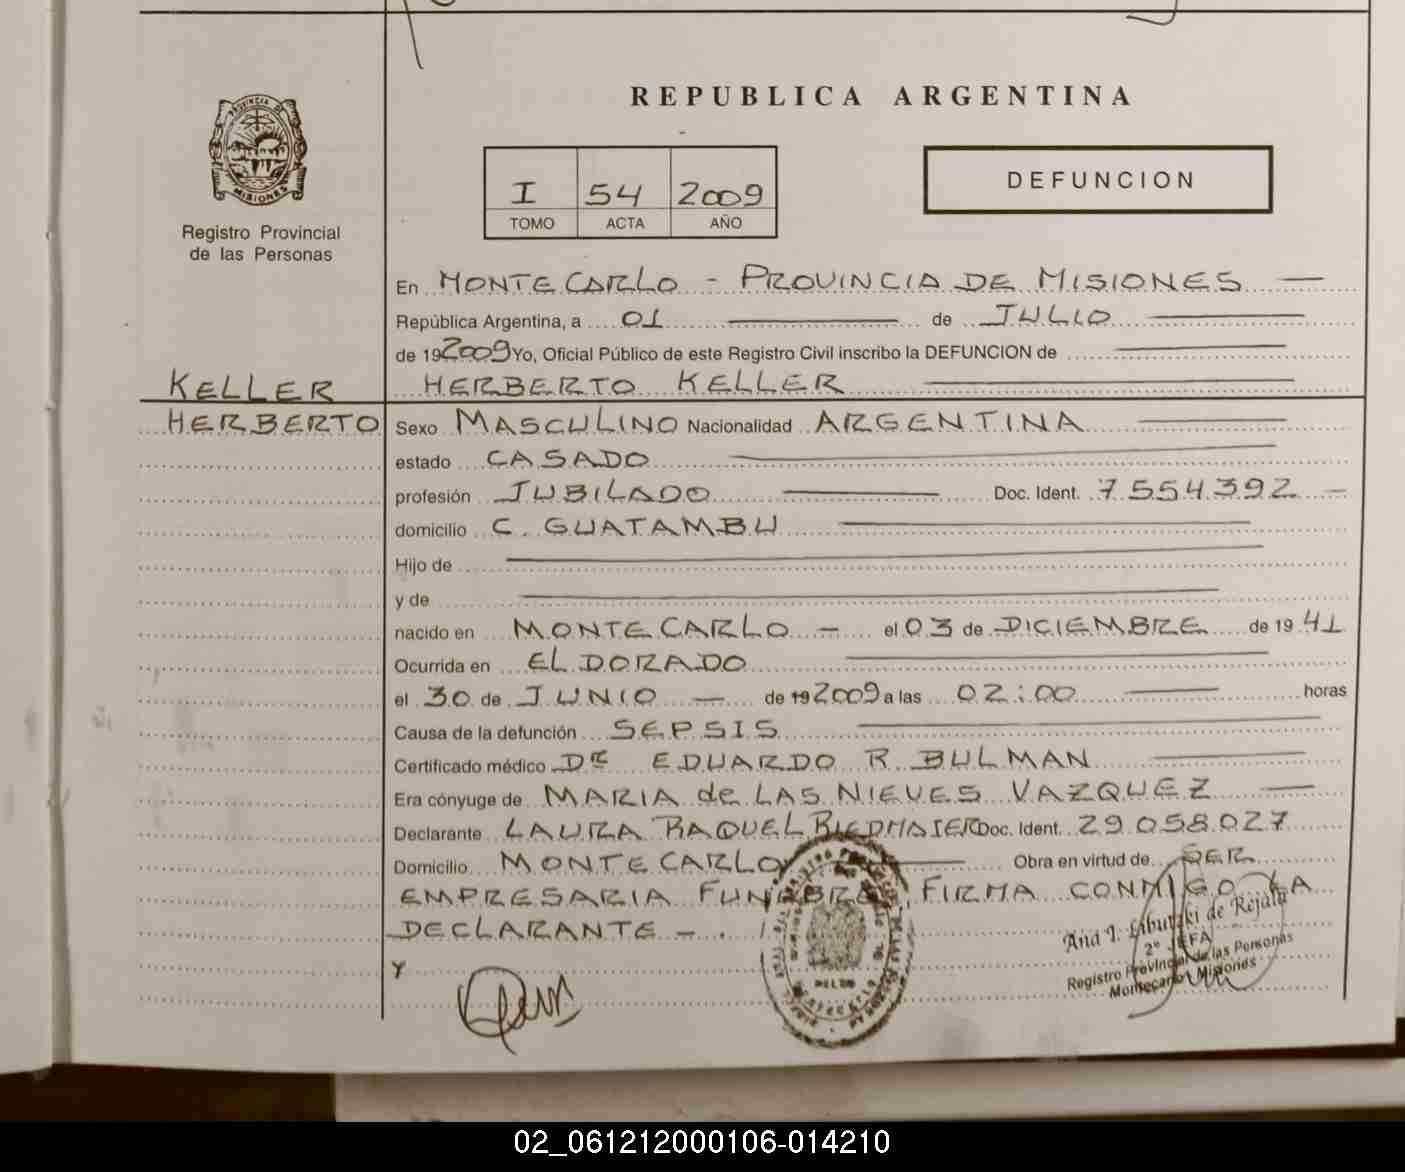 REPUBLICA ARGENTINA
PROVINCIA DE MISIONES
Registro Provincial
de las Personas
I 54 2009
TOMO ACTA AÑO
DEFUNCION
En MONTECARLO - PROVINCIA DE MISIONES —
República Argentina, a 01 — de JULIO —
de 192009 Yo, Oficial Público de este Registro Civil inscribo la DEFUNCION de —
KELLER
HERBERTO KELLER —
HERBERTO
Sexo MASCULINO Nacionalidad ARGENTINA —
estado CASADO —
profesión JUBILADO — Doc. Ident. 7.554.392 —
domicilio C. GUATAMBU —
Hijo de —
y de —
nacido en MONTECARLO — el 03 de DICIEMBRE de 1941
Ocurrida en ELDORADO —
el 30 de JUNIO — de 192009 a las 02:00 — horas
Causa de la defunción SEPSIS —
Certificado médico Dr EDUARDO R. BULMAN —
Era cónyuge de MARIA de LAS NIEVES VAZQUEZ —
Declarante LAURA RAQUEL BIEDMAIER Doc. Ident. 29.058.027
Domicilio MONTECARLO — Obra en virtud de SER
EMPRESARIA FUNEBRE FIRMA CONMIGO LA
DECLARANTE - .
Ana I. de Rejala
2° JEFA
Registro Provincial de las Personas
Montecarlo Misiones
02_061212000106-014210